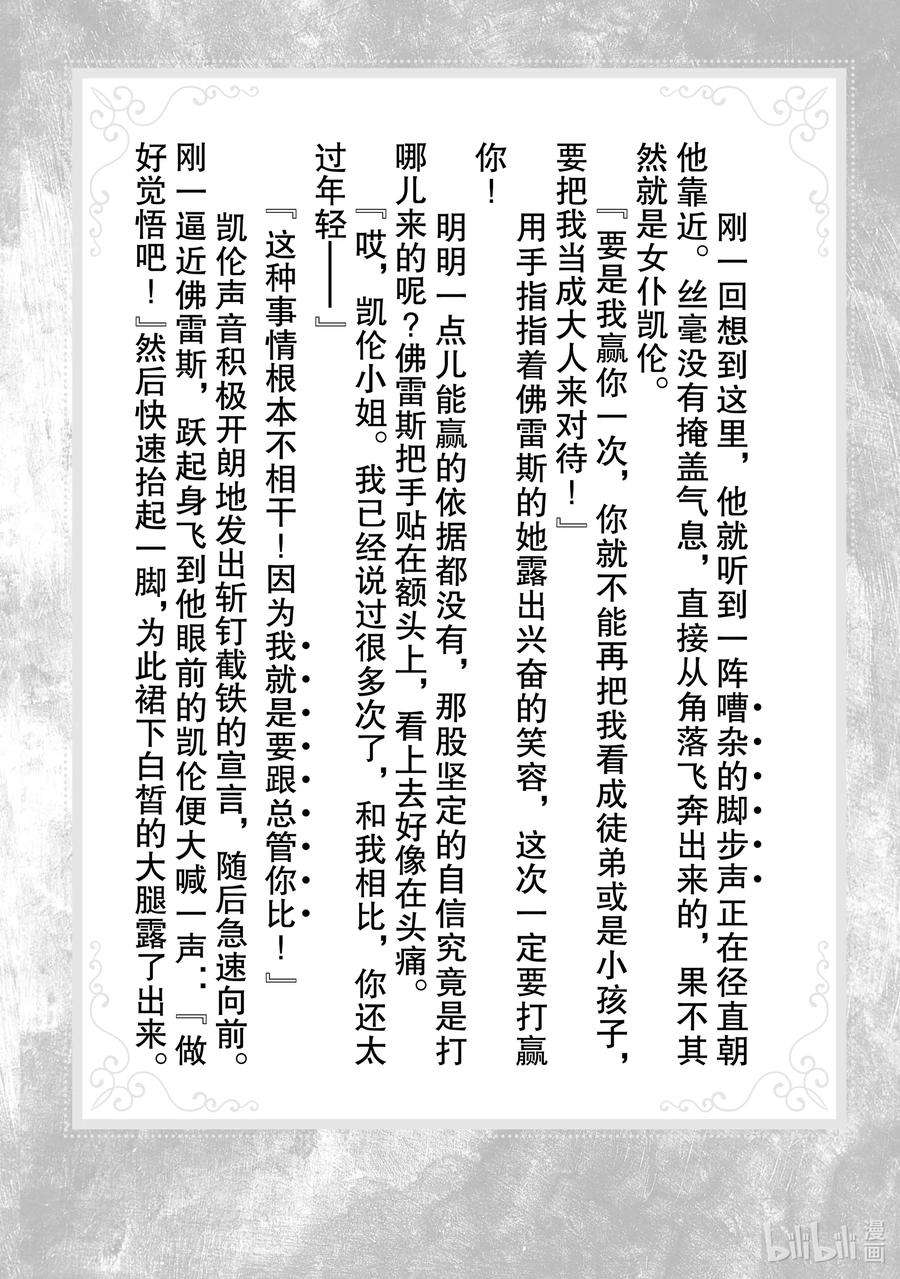 刚一回想到这里，他就听到一阵嘈杂的脚步声正在径直朝
他靠近。丝毫没有掩盖气息，直接从角落飞奔出来的，果不其
然就是女仆凯伦。
『要是我赢你一次，你就不能再把我看成徒弟或是小孩子，
要把我当成大人来对待！』
用手指指着佛雷斯的她露出兴奋的笑容，这次一定要打赢
你！
明明一点儿能赢的依据都没有，那股坚定的自信究竟是打
哪儿来的呢？佛雷斯把手贴在额头上，看上去好像在头痛。
『哎，凯伦小姐。我已经说过很多次了，和我相比，你还太
过年轻——』
『这种事情根本不相干！因为我就是要跟总管你比！』
凯伦声音积极开朗地发出斩钉截铁的宣言，随后急速向前。
刚一逼近佛雷斯，跃起身飞到他眼前的凯伦便大喊一声：『做
好觉悟吧！』然后快速抬起一脚，为此裙下白皙的大腿露了出来。
bilibili 漫画